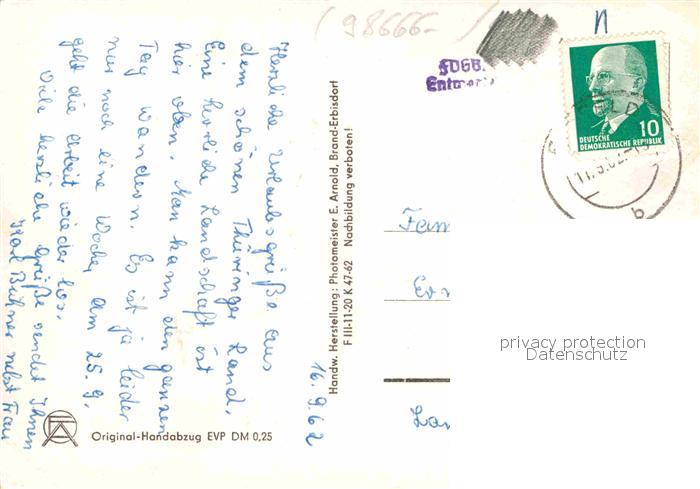 (98666-)
n
FDGB
10
DEUTSCHE
DEMOKRATISCHE REPUBLIK
Herzliche Urlaubsgrüße aus
dem schönen Thüringer Land.
Eine herrliche Landschaft ist
hier oben. Man kann den ganzen
Tag wandern. Es ist ja leider
nur noch eine Woche, am 25.9.
geht die Arbeit wieder los.
Viele herzliche Grüße sendet Ihnen
Karl Bühner nebst Frau
16.9.62
Handw. Herstellung: Photomeister E. Arnold, Brand-Erbisdorf
F III-11-20 K 47-62 Nachbildung verboten!
Fam
privacy protection
Datenschutz
Original-Handabzug EVP DM 0,25